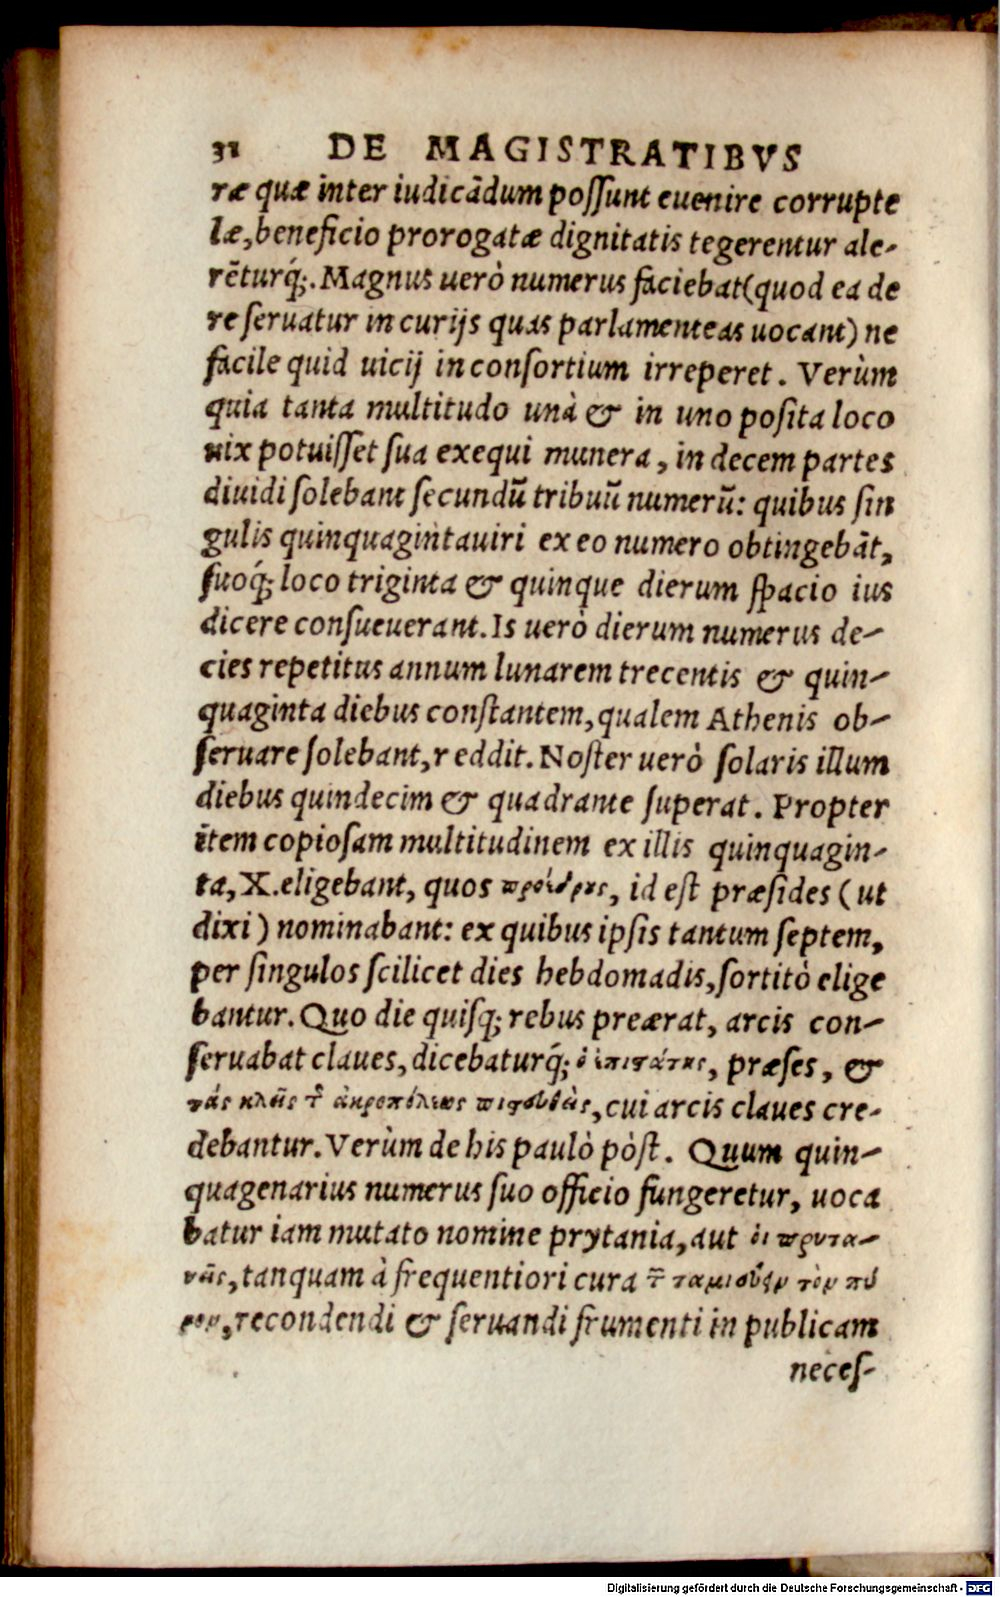 32 DE MAGISTRATIBVS
ræ quæ inter iudicādum poſſunt euenire corrupte
læ, beneficio prorogatæ dignitatis tegerentur ale-
rēturq́;. Magnus uerò numerus faciebat (quod ea de
re ſeruatur in curijs quas parlamenteas uocant) ne
facile quid uicij in conſortium irreperet. Verùm
quia tanta multitudo unà & in uno poſita loco
uix potuiſſet ſua exequi munera, in decem partes
diuidi ſolebant ſecundū tribuū numerū: quibus ſin
gulis quinquagintauiri ex eo numero obtingebāt,
ſuoq́; loco triginta & quinque dierum ſpacio ius
dicere conſueuerant. Is uerò dierum numerus de-
cies repetitus annum lunarem trecentis & quin-
quaginta diebus conſtantem, qualem Athenis ob-
ſeruare ſolebant, reddit. Noſter uerò ſolaris illum
diebus quindecim & quadrante ſuperat. Propter
item copioſam multitudinem ex illis quinquagin-
ta, X. eligebant, quos προέδρους, id eſt præſides (ut
dixi) nominabant: ex quibus ipſis tantum ſeptem,
per ſingulos ſcilicet dies hebdomadis, ſortitò elige
bantur. Quo die quiſq; rebus preærat, arcis con-
ſeruabat claues, dicebaturq́; ὁ ἐπιστάτης, præſes, &
τὰς κλεῖς τ῀ ἀκροπόλεως πιστευθεὶς, cui arcis claues cre-
debantur. Verùm de his paulò pòſt. Quum quin-
quagenarius numerus ſuo officio fungeretur, uoca
batur iam mutato nomine prytania, aut οἱ πρυτα-
νεῖς, tanquam à frequentiori cura τ῀ ταμιεύειν τὸν πυ
ρον, recondendi & ſeruandi frumenti in publicam
neceſ-
Digitalisierung gefördert durch die Deutsche Forschungsgemeinschaft - DFG